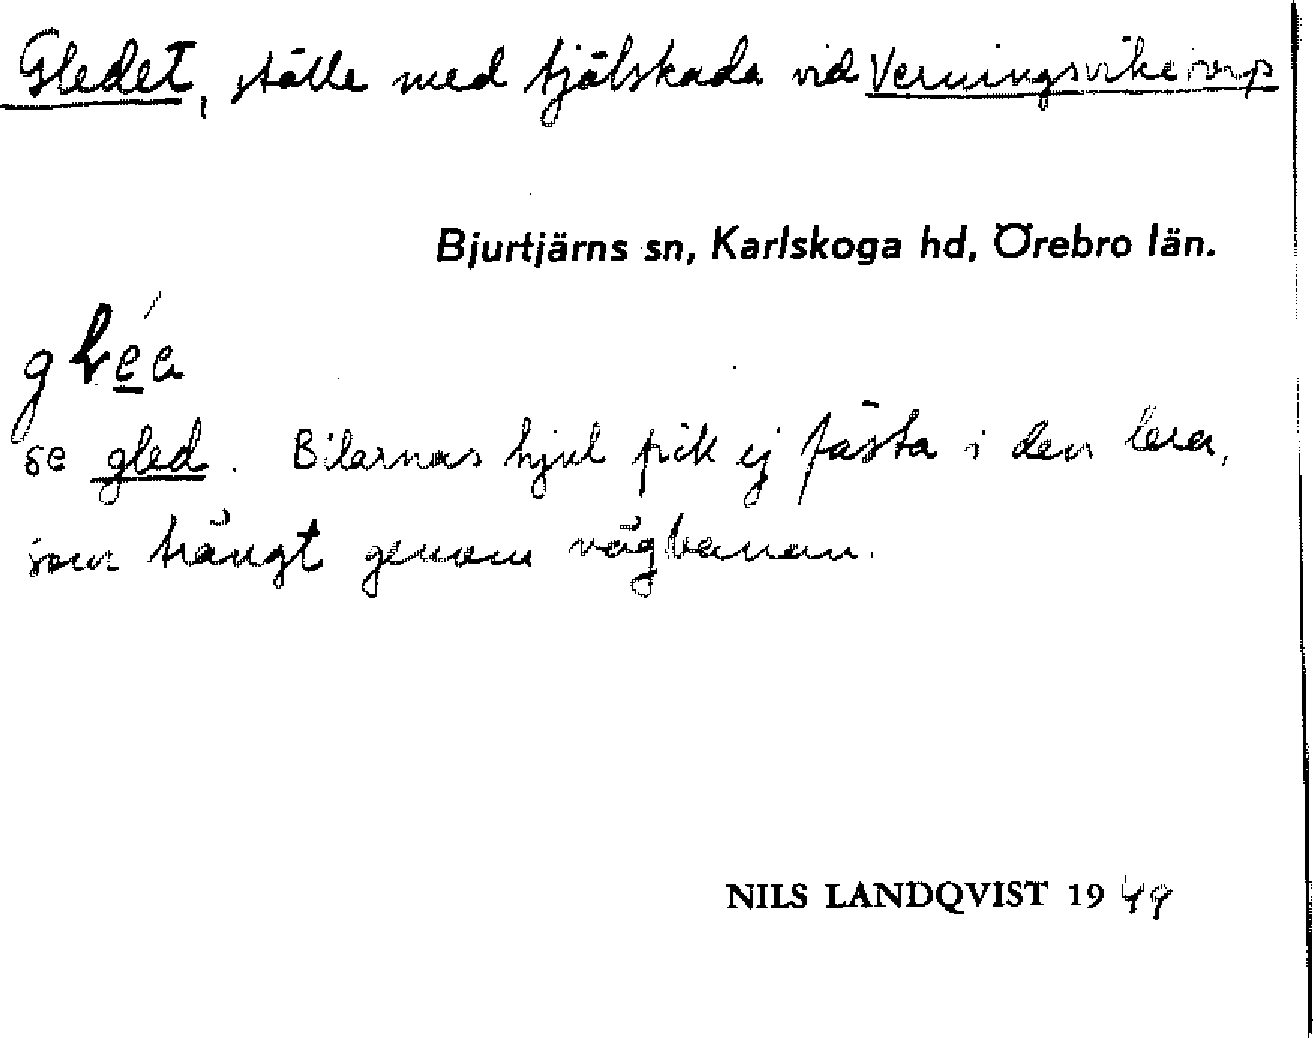 Gledet, ställe med tjälskada vid
Bjurtjärns sn, Karlskoga hd, Örebro län.
se gled. Bilarnas hjul fick ej fäste i den lera,
som trängt genom vägbanan.
NILS LANDQVIST 1949